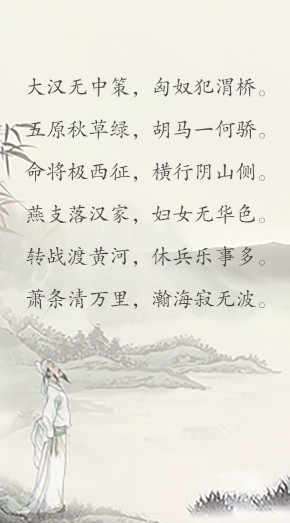 大汉无中策，匈奴犯渭桥。
五原秋草绿，胡马一何骄。
命将极西征，横行阴山侧。
燕支落汉家，妇女无华色。
转战渡黄河，休兵乐事多。
萧条清万里，瀚海寂无波。